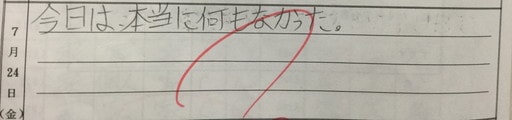 今日は、本当に何もなかった。
7
月
24
日
(金)